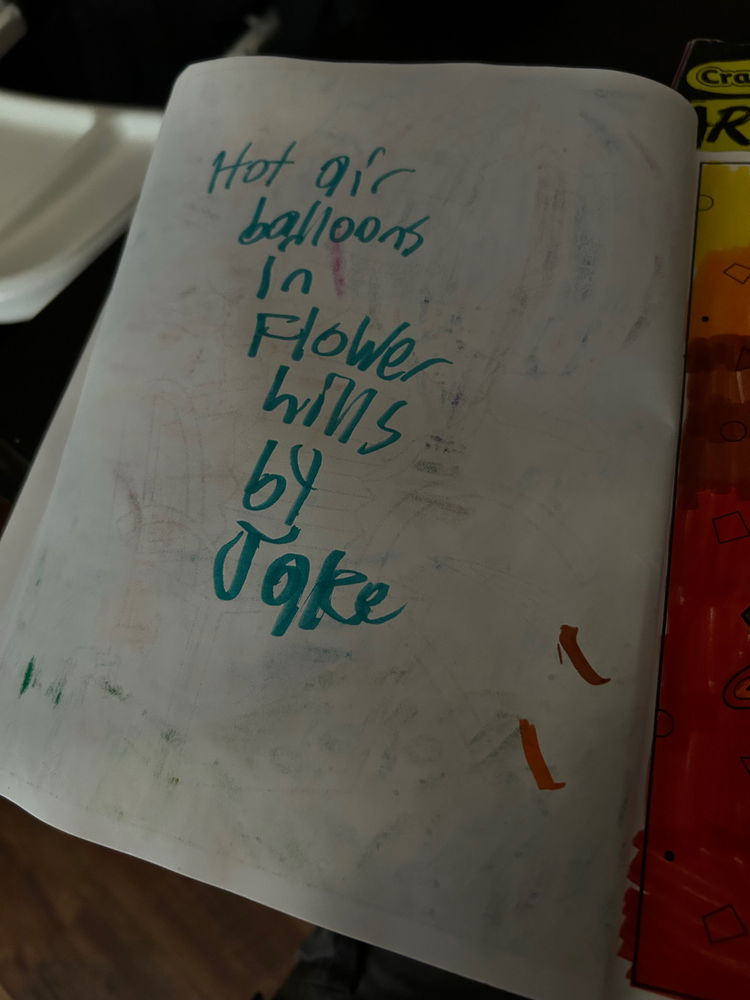 Hot air
balloons
In
Flower
hills
by
Jake
Cra
AR